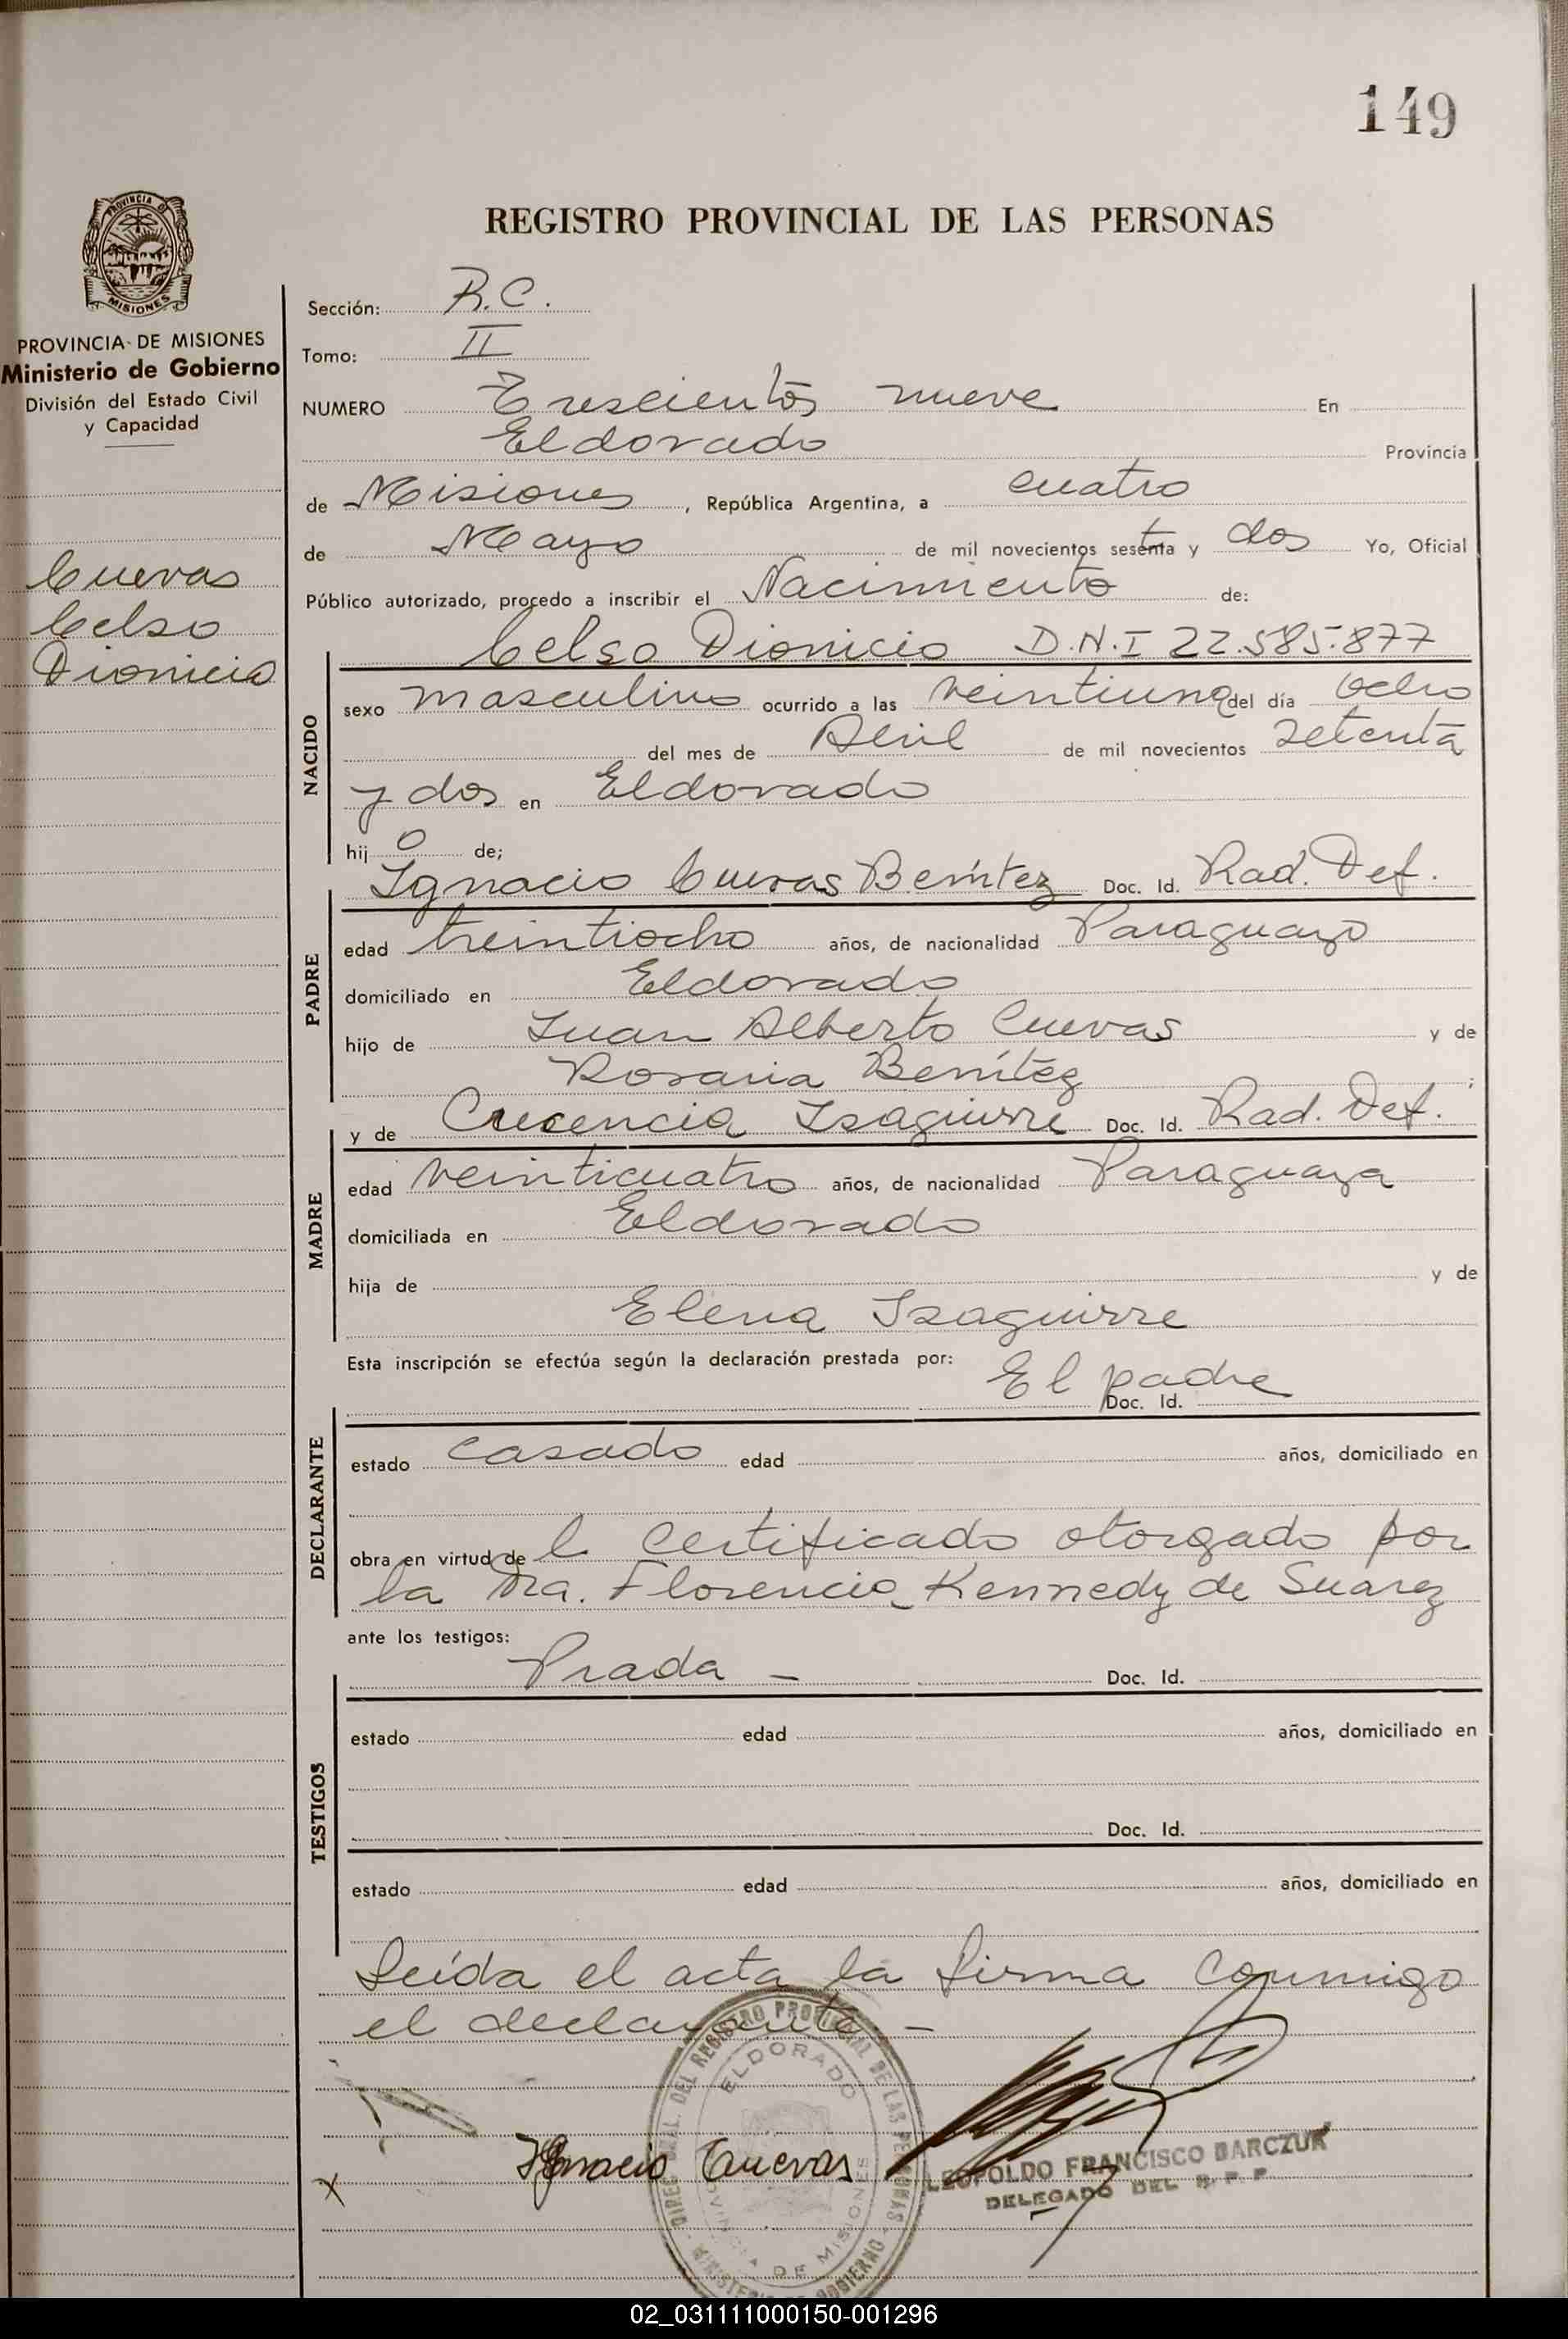 149
REGISTRO PROVINCIAL DE LAS PERSONAS
PROVINCIA DE MISIONES
PROVINCIA DE MISIONES
Ministerio de Gobierno
División del Estado Civil
y Capacidad
Cuevas
Celso
Dionicio
Sección: R.C.
Tomo: II
NUMERO Trescientos nueve En
Eldorado Provincia
de Misiones, República Argentina, a cuatro
de Mayo de mil novecientos sesenta y dos Yo, Oficial
Público autorizado, procedo a inscribir el Nacimiento de:
Celso Dionicio D.N.I 22.585.877
NACIDO
sexo masculino ocurrido a las veintiuna del día ocho
del mes de Abril de mil novecientos setenta
y dos en Eldorado
hij o de;
Ignacio Cuevas Benítez Doc. Id. Rad. Def.
PADRE
edad treintiocho años, de nacionalidad Paraguayo
domiciliado en Eldorado
hijo de Juan Alberto Cuevas y de
Rosaria Benítez ;
y de Crecencia Isaguirre Doc. Id. Rad. Def.
MADRE
edad veinticuatro años, de nacionalidad Paraguaya
domiciliada en Eldorado
hija de y de
Elena Isaguirre
Esta inscripción se efectúa según la declaración prestada por:
El padre Doc. Id.
DECLARANTE
estado casado edad años, domiciliado en
obra en virtud de l Certificado otorgado por
la Dra. Florencia Kennedy de Suarez
ante los testigos:
Prada - Doc. Id.
TESTIGOS
estado edad años, domiciliado en
Doc. Id.
estado edad años, domiciliado en
Leída el acta la firma conmigo
el declarante -
DIREC. GRAL. DEL REGISTRO PROVINCIAL DE LAS PERSONAS
ELDORADO
PROVINCIA DE MISIONES
MINISTERIO DE GOBIERNO
x Ignacio Cuevas
LEOPOLDO FRANCISCO BARCZUK
DELEGADO DEL R. P. P.
02_031111000150-001296